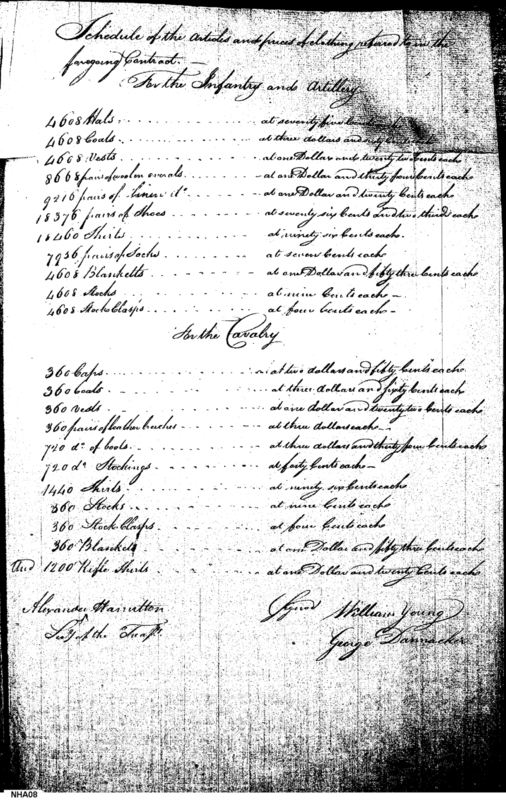 Schedule of the Articles and prices of clothing refered to in the
foregoing Contract. —
For the Infantry and Artillery
4608 Hats at seventy five
4608 Coats at three dollars and
4608 Vests at one Dollar and twenty two Cents each
8668 pair of woolen overals at one Dollar and thirty four Cents each
9216 pairs of linnen do at one Dollar and twenty Cents each
18376 pairs of Shoes at seventy six Cents and two third each
18460 Shirts at ninety six Cents each.
7936 pairs of Socks at seven Cents each
4608 Blanketts at one Dollar and fifty three Cents each
4608 Stocks at nine Cents each —
4608 Stock Clasps at four Cents each —
For the Cavalry
360 Caps at two dollars and fifty Cents each
360 Coats at three dollars and fifty Cents each
360 vests at one dollar and twenty two Cents each
360 pairs of leather breeches at three dollars each —
720 do of boots at three dollars and thirty four Cents each
720 do Stockings at forty Cents each —
1440 Shirts at ninety six Cents each
360 Stocks at nine Cents each
360 Stock Clasps at four Cents each
360 Blanketts at one Dollar and fifty three Cents each
And 1200 Rifle Shirts at one Dollar and twenty Cents each
Alexander Hamilton Signed William Young
Secy of the Treasy. George Dannacker
NHA08